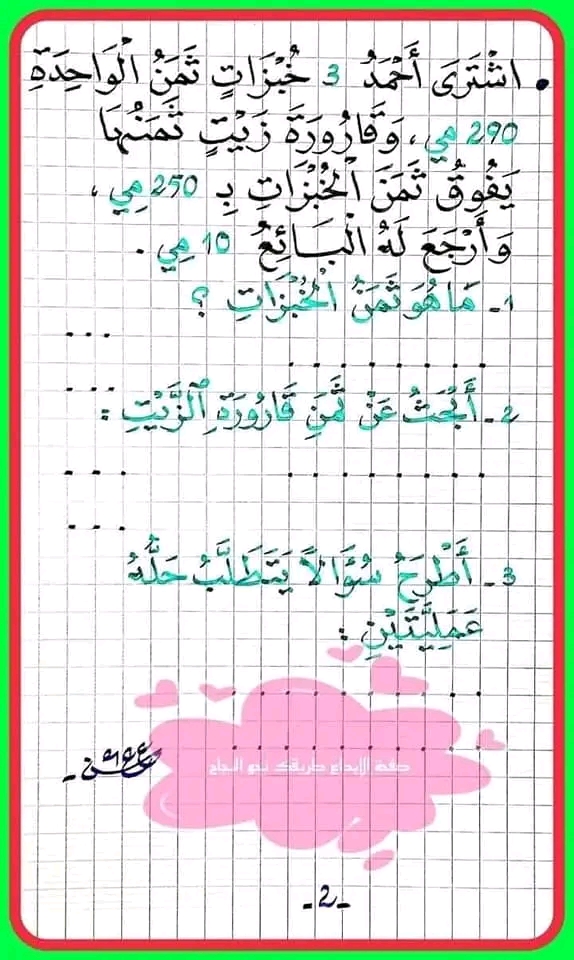 • اشْتَرَى أَحْمَدُ 3 خُبْزَاتٍ ثَمَنُ الْوَاحِدَةِ
290 مي، وَقَارُورَةَ زَيْتٍ ثَمَنُهَا
يَفُوقُ ثَمَنَ الْخُبْزَاتِ بِـ 250 مِي،
وَأَرْجَعَ لَهُ الْبَائِعُ 10 مِي.
1- مَا هُوَ ثَمَنُ الْخُبْزَاتِ ؟
...
........
...
2- أَبْحَثُ عَنْ ثَمَنِ قَارُورَةِ الزَّيْتِ :
........ ...
...
3- أَطْرَحُ سُؤَالاً يَتَطَلَّبُ حَلُّهُ
عَمَلِيَّتَيْنِ :
..........
..........
صفحة الإبداع طريقك نحو النجاح
-2-